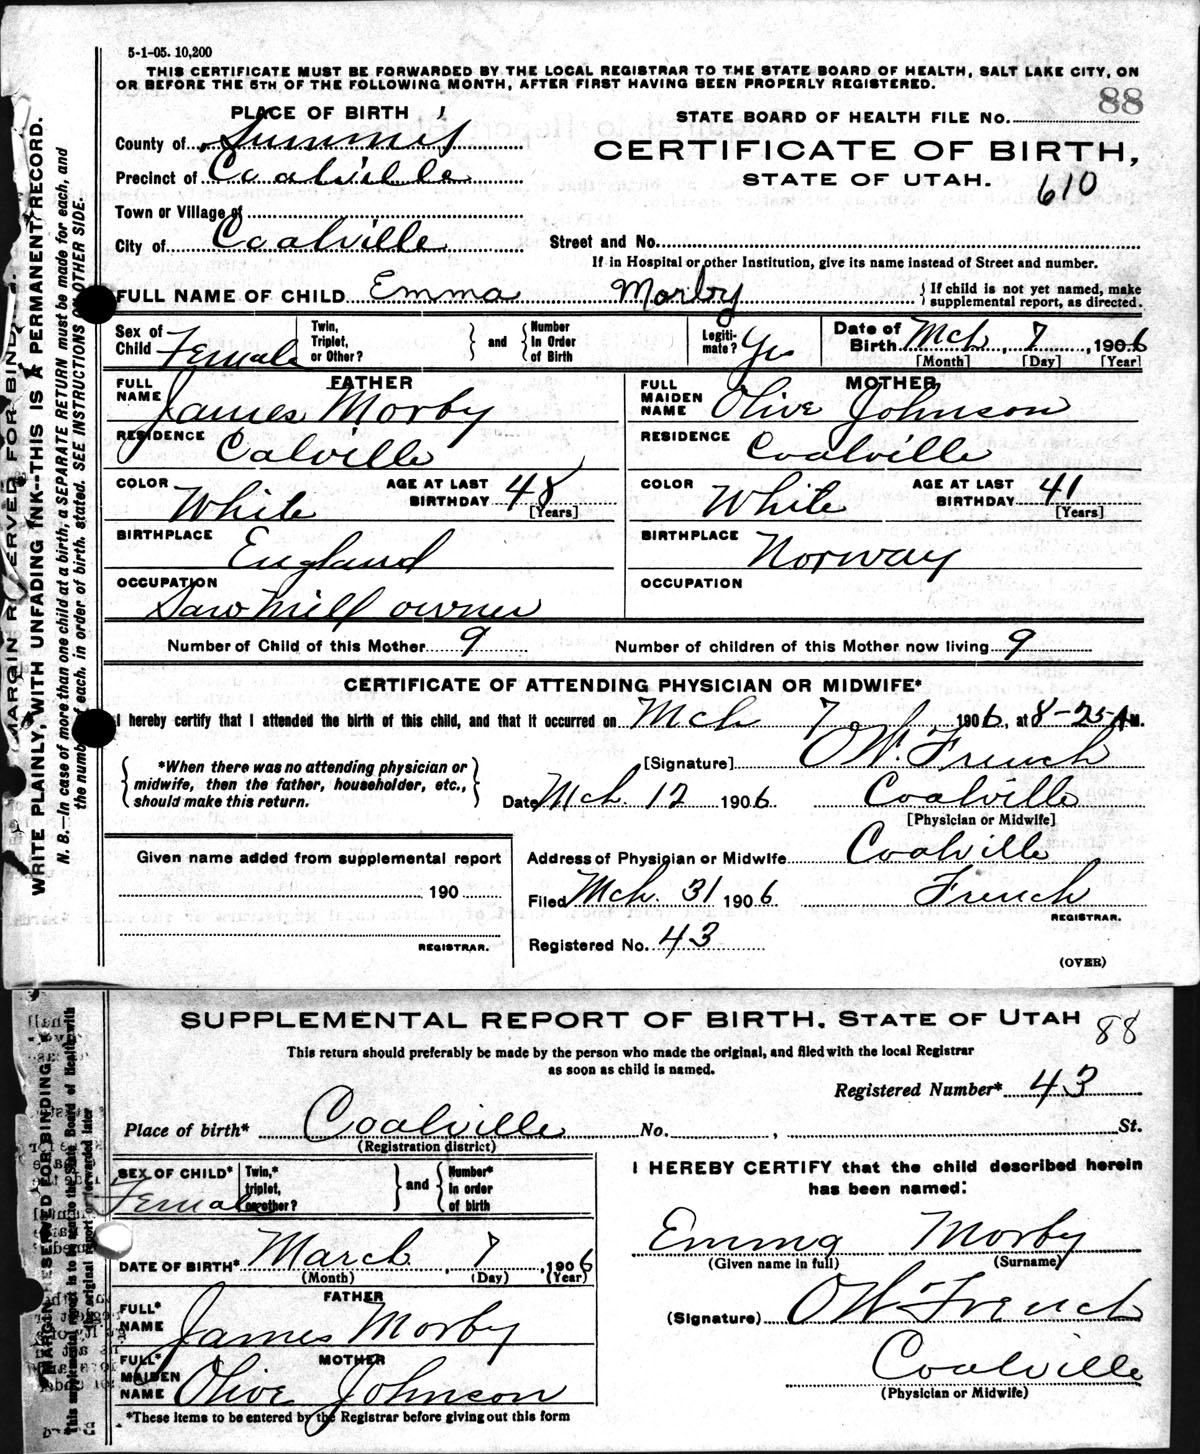 5-1-05. 10,200
THIS CERTIFICATE MUST BE FORWARDED BY THE LOCAL REGISTRAR TO THE STATE BOARD OF HEALTH, SALT LAKE CITY, ON
OR BEFORE THE 5TH OF THE FOLLOWING MONTH, AFTER FIRST HAVING BEEN PROPERLY REGISTERED.
88
PLACE OF BIRTH
STATE BOARD OF HEALTH FILE No.
County of Summit
CERTIFICATE OF BIRTH,
Precinct of Coalville
STATE OF UTAH.
610
Town or Village of
City of Coalville
Street and No.
If in Hospital or other Institution, give its name instead of Street and number.
FULL NAME OF CHILD Emma Morby
If child is not yet named, make
supplemental report, as directed.
Sex of Child Female
Twin, Triplet, or Other?
and
Number In Order of Birth
Legiti-mate? Yes
Date of Birth Mch. 7, 1906
[Month] [Day] [Year]
FATHER
FULL NAME James Morby
MOTHER
FULL MAIDEN NAME Olive Johnson
RESIDENCE Calville
RESIDENCE Coalville
COLOR White
AGE AT LAST BIRTHDAY 48
[Years]
COLOR White
AGE AT LAST BIRTHDAY 41
[Years]
BIRTHPLACE England
BIRTHPLACE Norway
OCCUPATION Saw Mill owner
OCCUPATION
Number of Child of this Mother 9
Number of children of this Mother now living 9
CERTIFICATE OF ATTENDING PHYSICIAN OR MIDWIFE*
I hereby certify that I attended the birth of this child, and that it occurred on Mch 7 1906, at 8-25 A M.
*When there was no attending physician or
midwife, then the father, householder, etc.,
should make this return.
[Signature] O.W. French
Date Mch. 12 1906 Coalville
[Physician or Midwife]
Given name added from supplemental report
190
REGISTRAR.
Address of Physician or Midwife Coalville
Filed Mch. 31 1906 French
REGISTRAR.
Registered No. 43
(OVER)
MARGIN RESERVED FOR BINDING.
WRITE PLAINLY, WITH UNFADING INK--THIS IS A PERMANENT RECORD.
N. B.—In case of more than one child at a birth, a SEPARATE RETURN must be made for each, and
the number of each, in order of birth, stated. SEE INSTRUCTIONS ON OTHER SIDE.
SUPPLEMENTAL REPORT OF BIRTH. STATE OF UTAH
88
This return should preferably be made by the person who made the original, and filed with the local Registrar
as soon as child is named.
Registered Number* 43
Place of birth* Coalville No. , St.
(Registration district)
SEX OF CHILD* Female
Twin,* triplet, or other?
and
Number* in order of birth
I HEREBY CERTIFY that the child described herein
has been named:
Emma Morby
(Given name in full) (Surname)
DATE OF BIRTH* March, 7, 1906
(Month) (Day) (Year)
FATHER
FULL* NAME James Morby
(Signature) O W French
MOTHER
FULL* MAIDEN NAME Olive Johnson
Coalville
(Physician or Midwife)
*These items to be entered by the Registrar before giving out this form
MARGIN RESERVED FOR BINDING.
This supplemental report is to be sent to the State Board of Health with